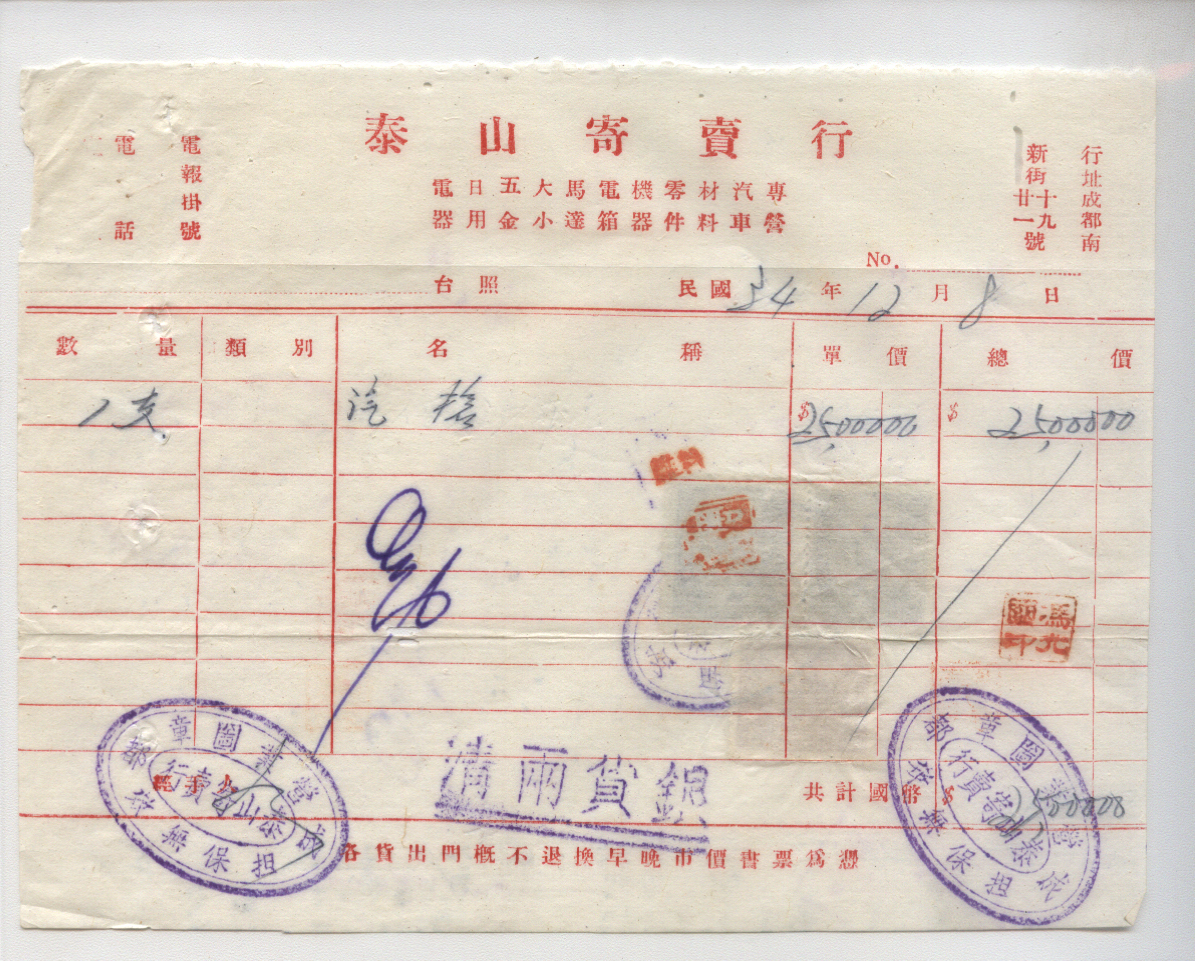 泰山寄賣行
專營汽車材料零件機器電箱馬達大小五金日用電器
行址成都南新街十九廿一號
電報掛號
電話
No.
台照
民國34年12月8日
數量 類別 名稱 單價 總價
1支 汽槍 $2,500000 $2,500000
馮光
印
銀貨兩清
共計國幣$2,500000
經手人
成都
泰山寄賣行
營業圖章
担保無效
各貨出門概不退換早晚市價書票為憑